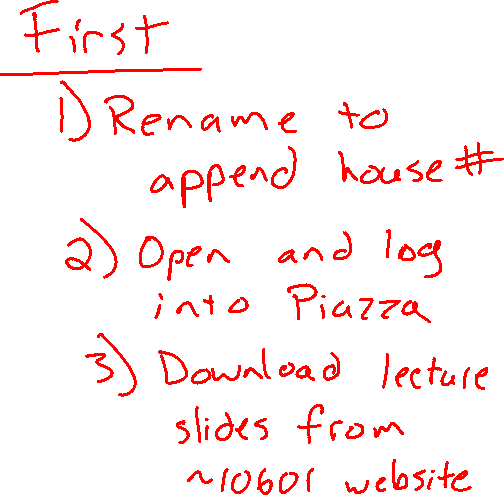 First
1) Rename to
append house #
2) Open and log
into Piazza
3) Download lecture
slides from
~10601 website